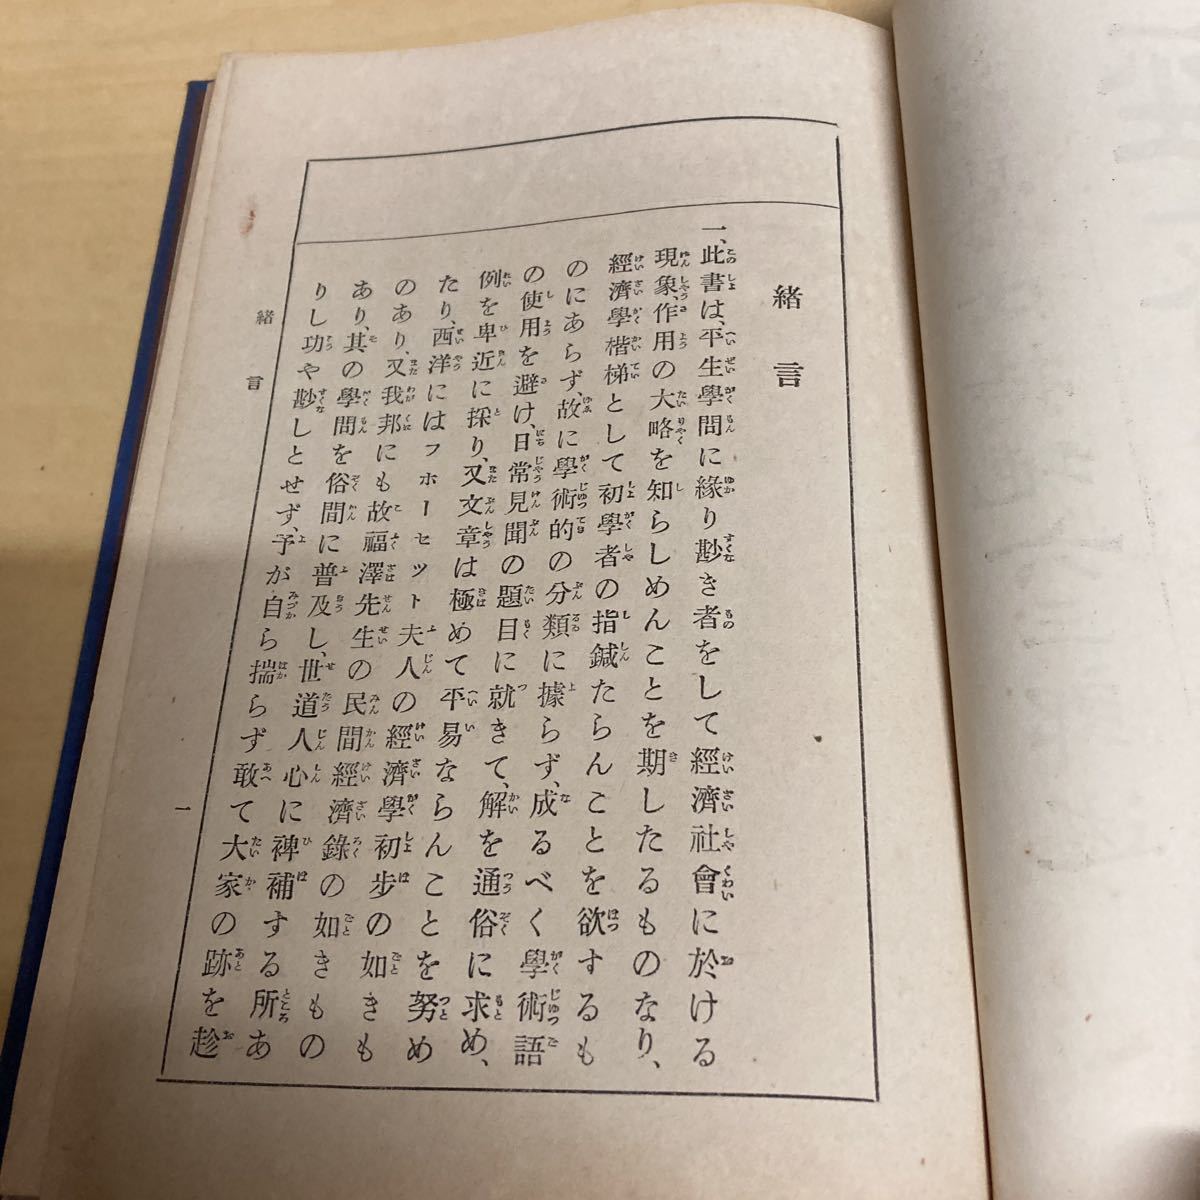 緒言
一、此書は、平生學問に緣り尠き者をして經濟社會に於ける
現象、作用の大略を知らしめんことを期したるものなり、
經濟學楷梯として初學者の指鍼たらんことを欲するも
のにあらず、故に學術的の分類に據らず、成るべく學術語
の使用を避け、日常見聞の題目に就きて、解を通俗に求め、
例を卑近に採り、又文章は極めて平易ならんことを努め
たり、西洋にはフホーセット夫人の經濟學初步の如きも
のあり、又我邦にも故福澤先生の民間經濟錄の如きもの
あり、其の學問を俗間に普及し、世道人心に裨補する所あ
りし功や尠しとせず、予が自ら揣らず敢て大家の跡を趁
緒言
一